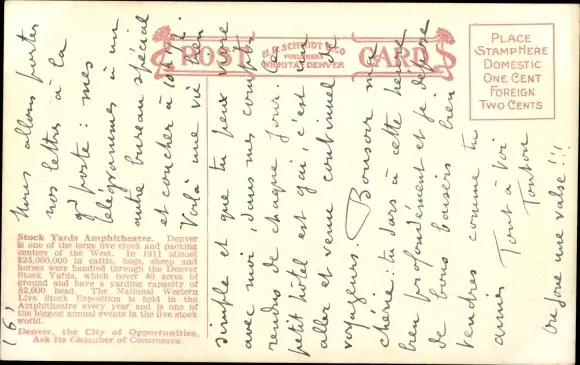 POST CARD
H. H. SCHMIDT & CO
PUBLISHERS
WICHITA-DENVER
PLACE
STAMP HERE
DOMESTIC
ONE CENT
FOREIGN
TWO CENTS
Stock Yards Amphitheatre. Denver
is one of the large live stock and packing
centers of the West. In 1911 almost
$25,000,000 in cattle, hogs, sheep and
horses were handled through the Denver
Stock Yards, which cover 40 acres of
ground and have a yarding capacity of
82,600 head. The National Western
Live Stock Exposition is held in the
Amphitheatre every year and is one of
the biggest annual events in the live stock
world.
Denver, the City of Opportunities,
Ask Its Chamber of Commerce.
(6)
Nous allons porter
nos lettres à la
gde poste : mes
télégrammes à un
autre bureau spécial
et coucher à 10h ½.
Voilà une vie bien
simple et que tu peux vivre
avec moi, dans mes comptes
rendus de chaque jour. Ce
petit hôtel est gai, c'est un
aller et venue continuel de
voyageurs. Bonsoir ma
chérie : tu dors à cette heure
bien profondément et je dépose
de bons baisers bien
tendres comme tu
aimes Tout à toi
Tonton
On joue une valse !!!